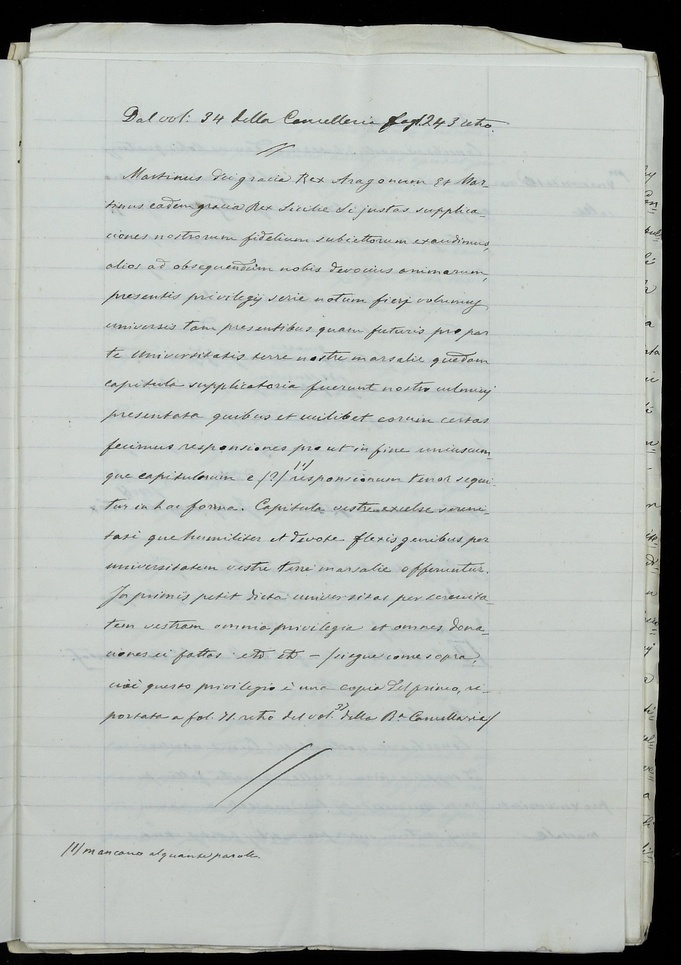 Dal vol: 34 della Cancelleria fogl 243 retro.
Martinus dei gracia Rex Aragonum et Mar-
tinus eadem gracia Rex Sicilie Si justas supplica-
ciones nostrorum fidelium subiettorum exaudimus,
alios ad obsequendum nobis devocius animarum,
presentis privilegij serie notum fierj volumus
universis tam presentibus quam futuris pro par
te Universitatis terre nostre marsalie quedam
capitula supplicatoria fuerunt nostro culminj
presentata quibus et cuilibet eorum certas
fecimus responsiones pro ut in fine uniuscum-
que capitulorum e /?/ (1) responsionum tenor sequi-
tur in hac forma. Capitula vestre excelse sereni-
tati que humiliter et devote flexis genibus per
universitatem vestre terre marsalie offeruntur.
In primis petit dicta universitas per serenita-
tem vestram omnia privilegia et omnes dona-
ciones ei fattas etc etc – /siegue come sopra,
cioè questo privilegio è una copia del primo, ri-
portato a fol. 71. retro del vol. 33 della Ra Cancellaria/
(1) mancano alquante parole